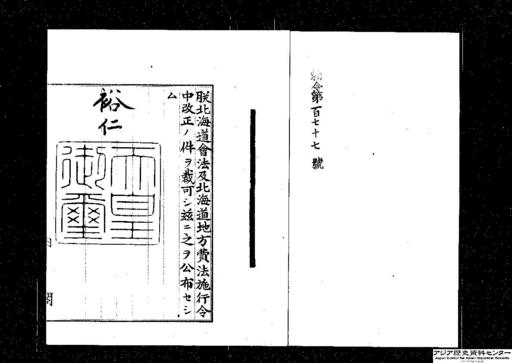 勅令第百七十七號
朕北海道會法及北海道地方費法施行令
中改正ノ件ヲ裁可シ茲ニ之ヲ公布セシ
ム
裕仁
天皇
御璽
内閣
アジア歴史資料センター
Japan Center for Asian Historical Records